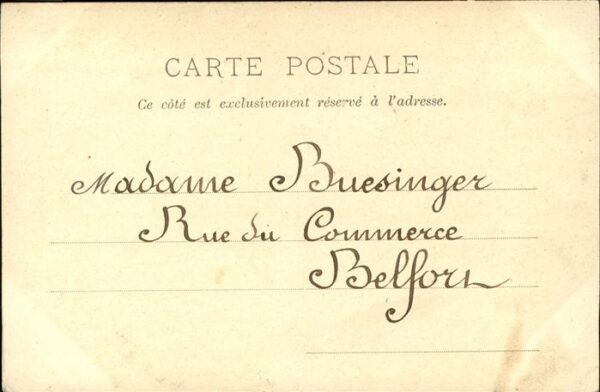 CARTE POSTALE
Ce côté est exclusivement réservé à l'adresse.
Madame Buesinger
Rue du Commerce
Belfort